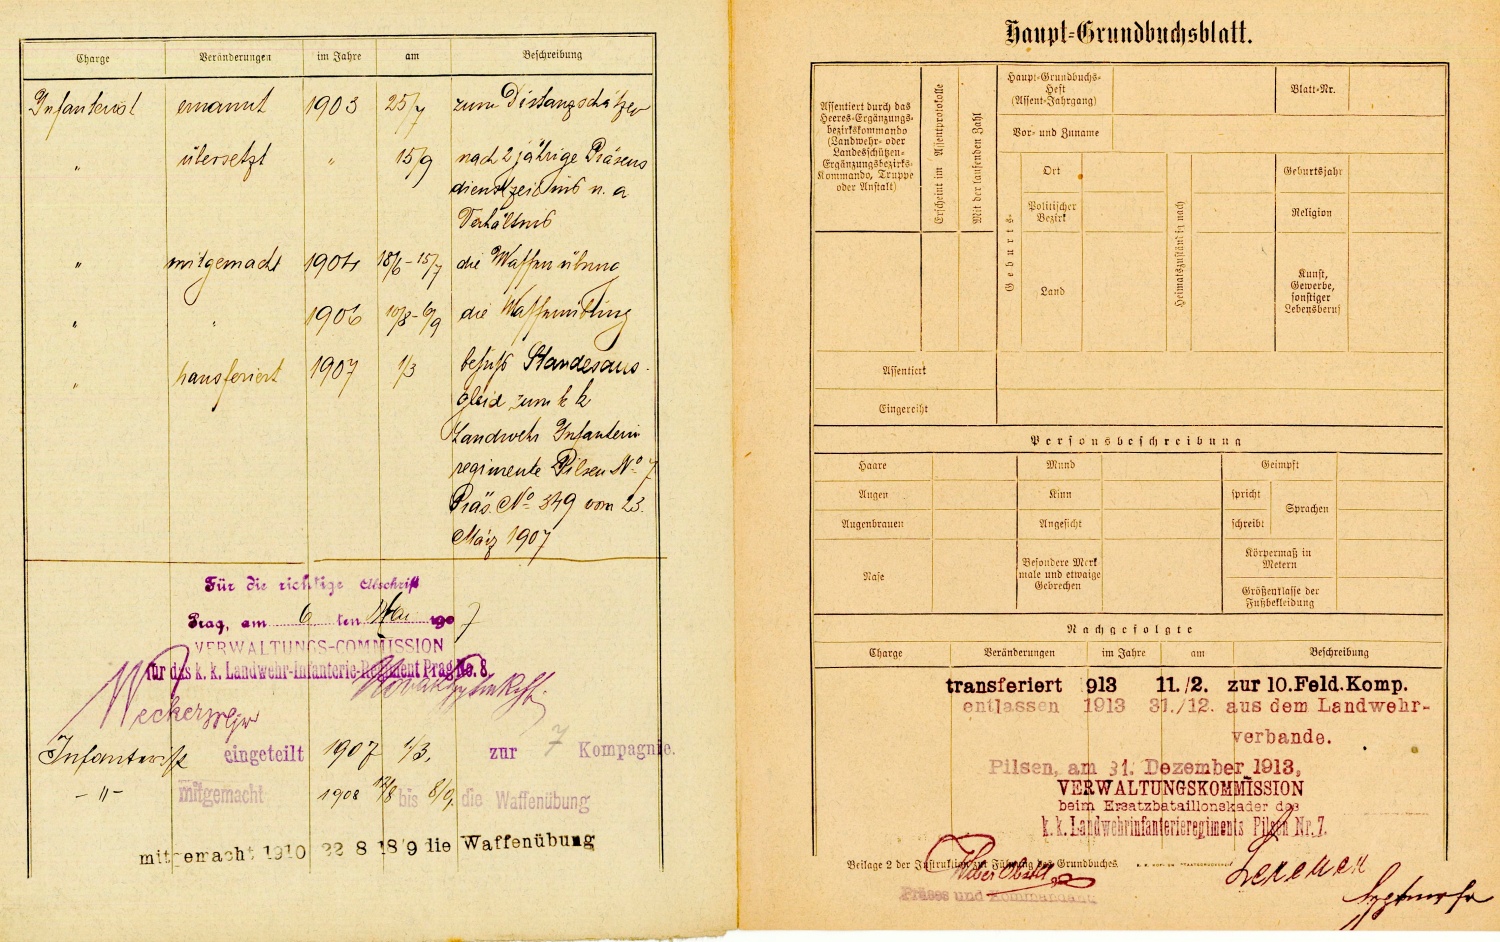 Charge Veränderungen im Jahre am Beschreibung
Infanterist ernannt 1903 25/7 zum Distanzschätzer
" übersetzt " 15/9 nach 2 jährige Präsens
dienstzeit ins n. a
Verhältnis
" mitgemacht 1904 18/6-15/7 die Waffenübung
" " 1906 10/8-6/9 die Waffenübung
" transferiert 1907 1/3 behufs Standesaus-
gleich zum k k
Landwehr Infanterie
regimente Pilsen No 7
Präs. No 349 vom 23.
März 1907
Für die richtige Abschrift
Prag, am 6 ten Mai 1907
VERWALTUNGS-COMMISSION
für das k. k. Landwehr-Infanterie-Regiment Prag No. 8.
Infanterist eingeteilt 1907 1/3. zur 7 Kompagnie.
-"- mitgemacht 1908 12/8 bis 8/9. die Waffenübung
mitgemacht 1910 22 8 18 9 die Waffenübung
Haupt-Grundbuchsblatt.
Assentiert durch das
Heeres-Ergänzungs-
bezirkskommando
(Landwehr- oder
Landesschützen-
Ergänzungsbezirks-
Kommando, Truppe
oder Anstalt)
Erscheint im Assentprotokolle
Mit der laufenden Zahl
Haupt-Grundbuchs-
Heft
(Assent-Jahrgang)
Blatt-Nr.
Vor- und Zuname
Geburts-
Ort
Politischer
Bezirk
Land
Heimatszuständig nach
Geburtsjahr
Religion
Kunst,
Gewerbe,
sonstiger
Lebensberuf
Assentiert
Eingereiht
Personsbeschreibung
Haare Mund Geimpft
Augen Kinn spricht Sprachen
Augenbrauen Angesicht schreibt
Nase
Besondere Merk
male und etwaige
Gebrechen
Körpermaß in
Metern
Größenklasse der
Fußbekleidung
Nachgefolgte
Charge Veränderungen im Jahre am Beschreibung
transferiert 913 11./2. zur 10.Feld.Komp.
entlassen 1913 31./12. aus dem Landwehr-
verbande.
Pilsen, am 31. Dezember 1913,
VERWALTUNGSKOMMISSION
beim Ersatzbataillonskader des
k.k. Landwehrinfanterieregiments Pilsen Nr. 7.
Beilage 2 der Instruktion zur Führung des Grundbuches.
Präses und Kommandant